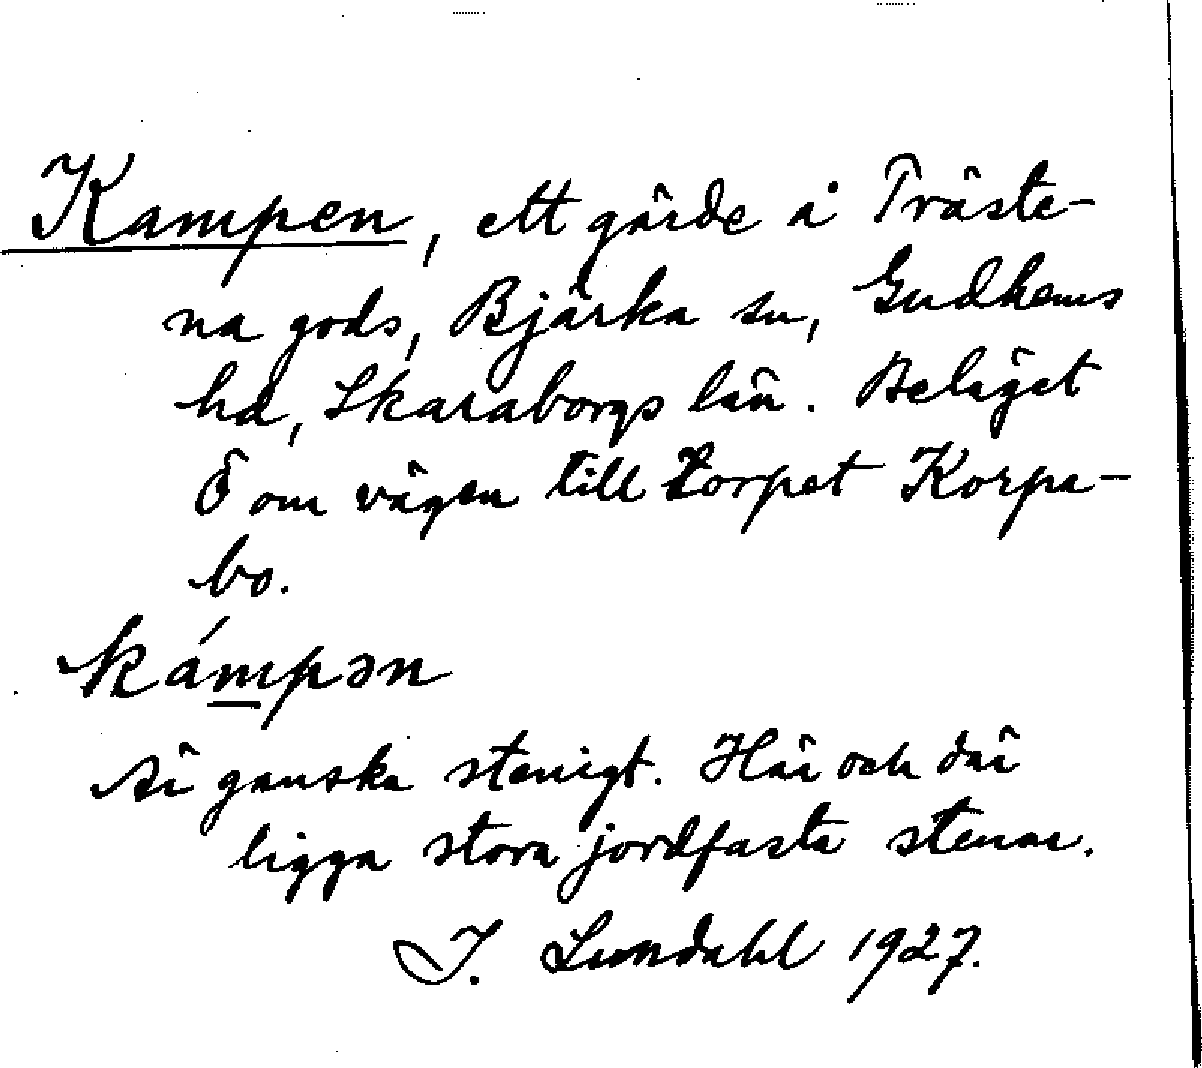 Kampen, ett gärde å Träste-
na gods, Bjärka sn, Gudhems
hd, Skaraborgs län. Beläget
Ö om vägen till torpet Korpa-
bo.
kámpən
Är ganska stenigt. Här och där
ligga stora jordfasta stenar.
I. Lundahl 1927.